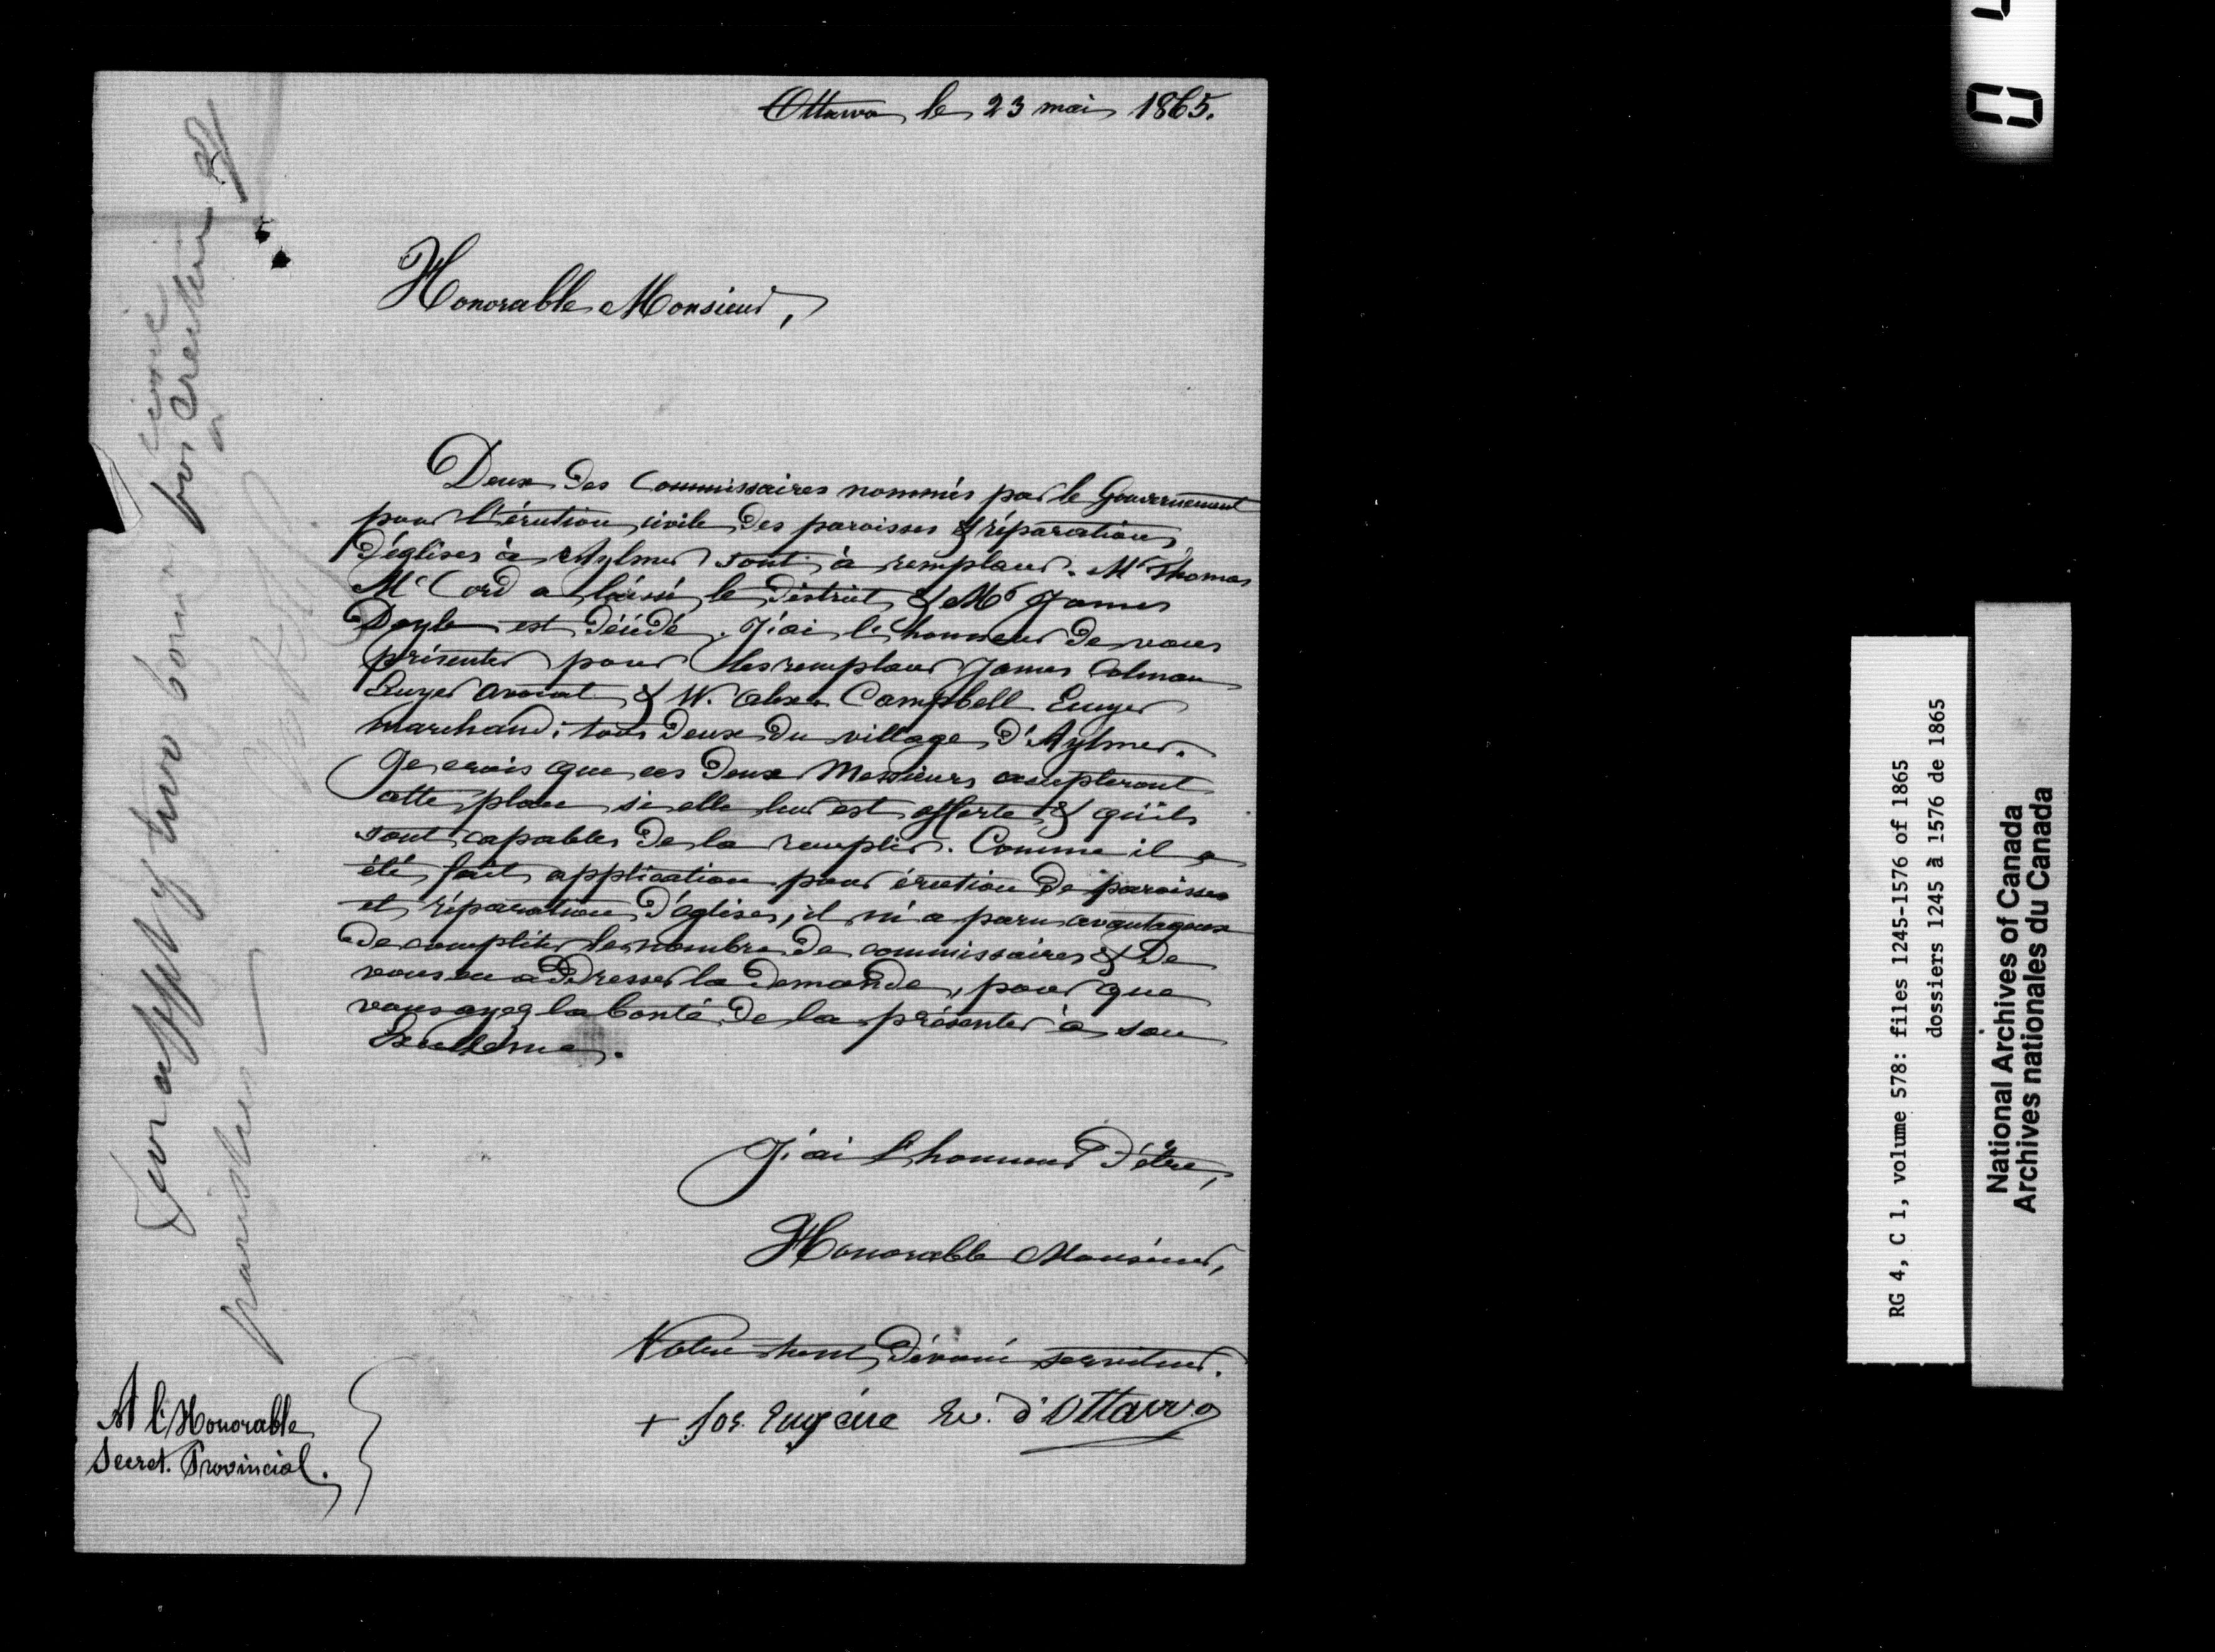 Ottawa le 23 mai 1865.
Honorable Monsieur,
Deux des Commissaires nommés par le Gouvernement
pour l'érection civile des paroisses & réparations
d'églises à Aylmer sont à remplacer. Mr Thomas
McCord a laissé le district & Mr James
Doyle est décédé. J'ai l'honneur de vous
présenter pour les remplacer James Colman
Ecuyer avocat & W. Alex. Campbell Ecuyer
marchand; tous deux du village d'Aylmer.
Je crois que ces deux Messieurs accepteront
cette place si elle leur est offerte & qu'ils
sont capables de la remplir. Comme il a
été fait application pour érection de paroisses
et réparation d'églises, il m'a paru avantageux
de compléter le nombre de commissaires & de
vous en addresser la demande, pour que
vous ayez la bonté de la présenter à son
Excellence.
J'ai l'honneur d'être,
Honorable Monsieur,
Votre tout dévoué serviteur.
+ Jos. Eugène Ev. d'Ottawa
A l'Honorable
Secret. Provincial.
appt of two
civil
for erection of
parishes
RG 4, C 1, volume 578: files 1245-1576 of 1865
dossiers 1245 à 1576 de 1865
National Archives of Canada
Archives nationales du Canada